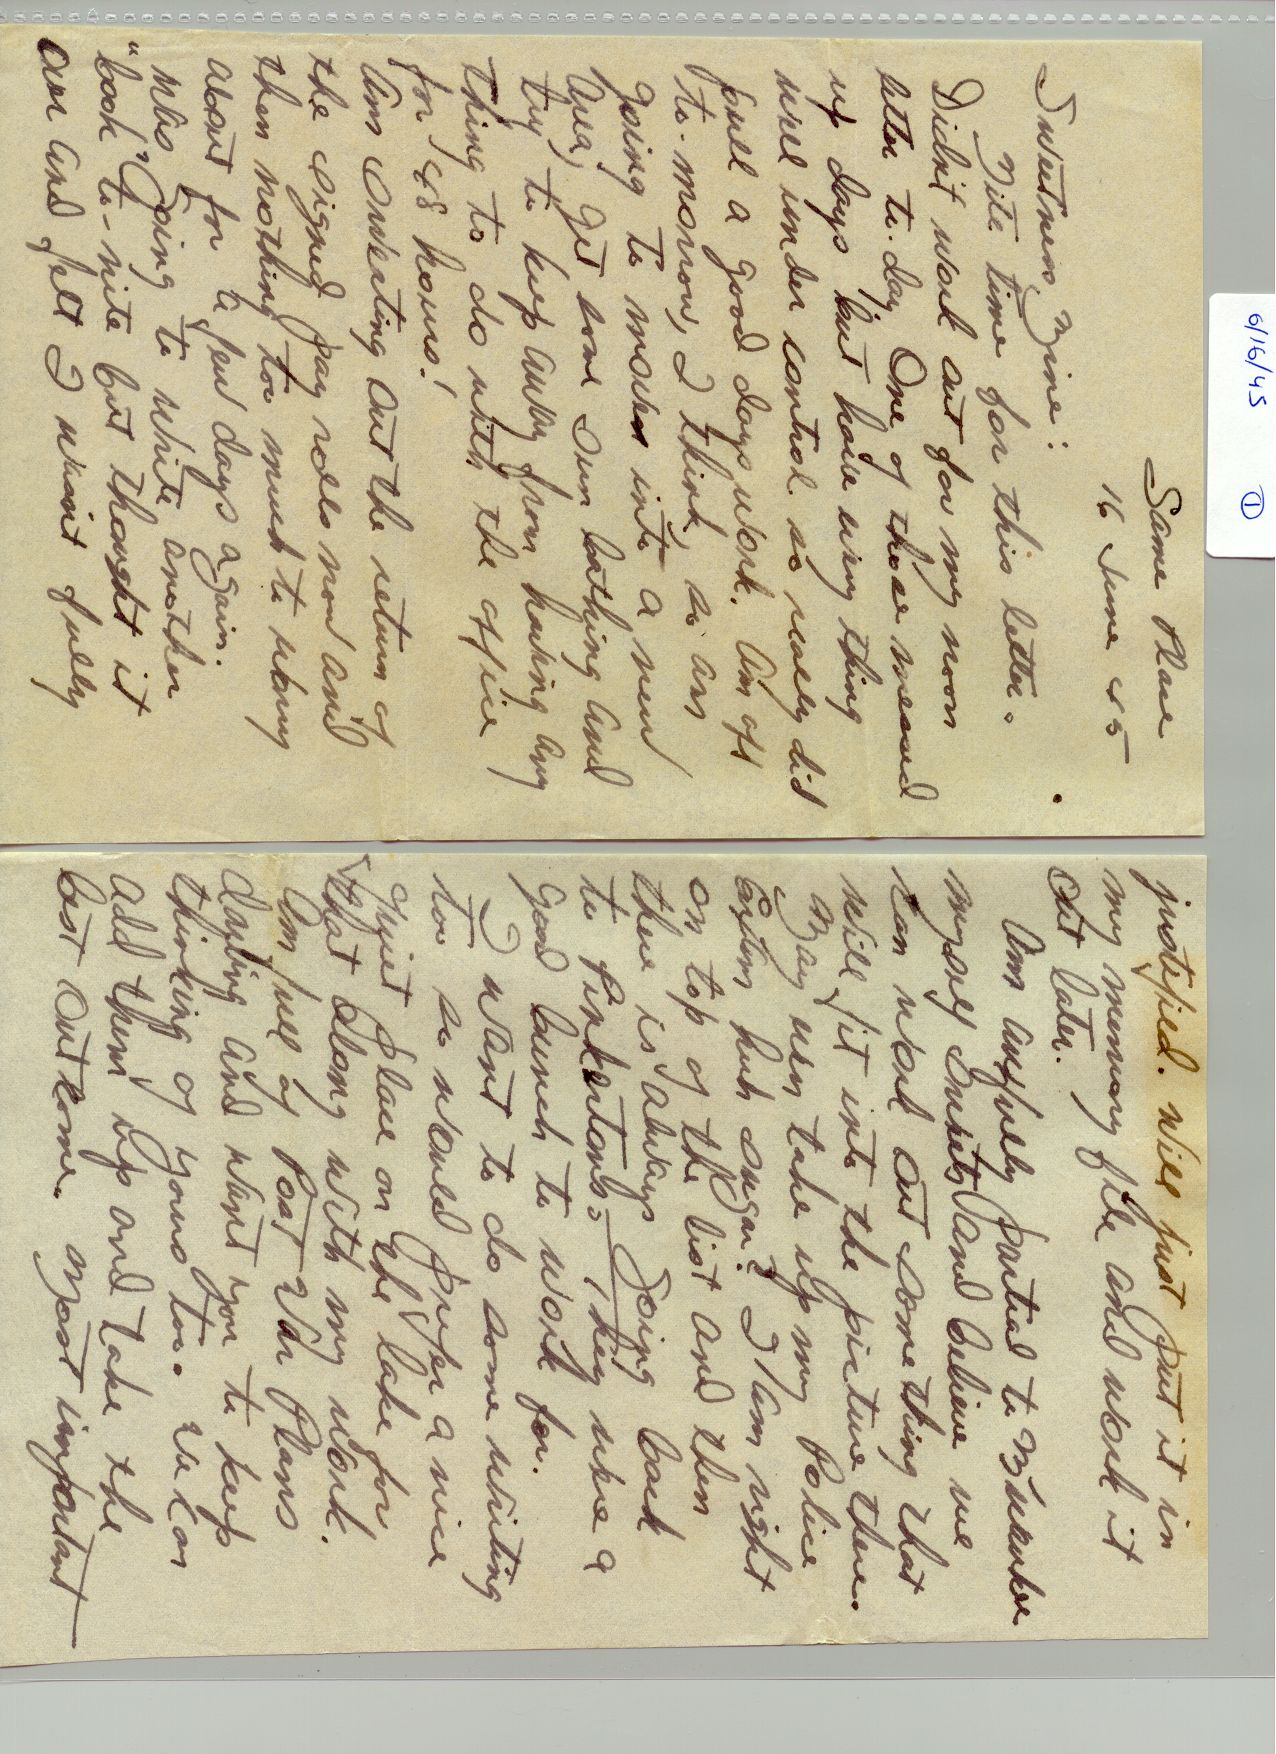 6/16/45 ①
Same Place
16 June 45
Sweetness Mine:
Nite time for this letter.
Didn't work out for my noon
letter to-day. One of those messed
up days but have every thing
well under control so really did
pull a good days work. Am off
to-morrow, I think, so am
going to mosey into a new
area, get some sun bathing and
try to keep away from having any
thing to do with the office
for 48 hours!
Am sweating out the return of
the signed pay roles now and
then nothing too much to worry
about for a few days again.
Was going to write another
"book" to-nite but thought it
over and felt I wasn't fully
justified. Will just put it in
my memory file and work it
out later.
Am awfully partial to
myself Sweets and believe we
can work out something that
will fit into the picture there.
May even take up my Police
System huh sugar? I am right
on top of the list and then
there is always going back
to Pinkertons - They were a
good bunch to work for.
I want to do some writing
too so would prefer a nice
quiet place on the lake for
that along with my work.
Am full of Post War Plans
darling and want you to keep
thinking of yours too. We can
add them up and take the
best outcome. Most important